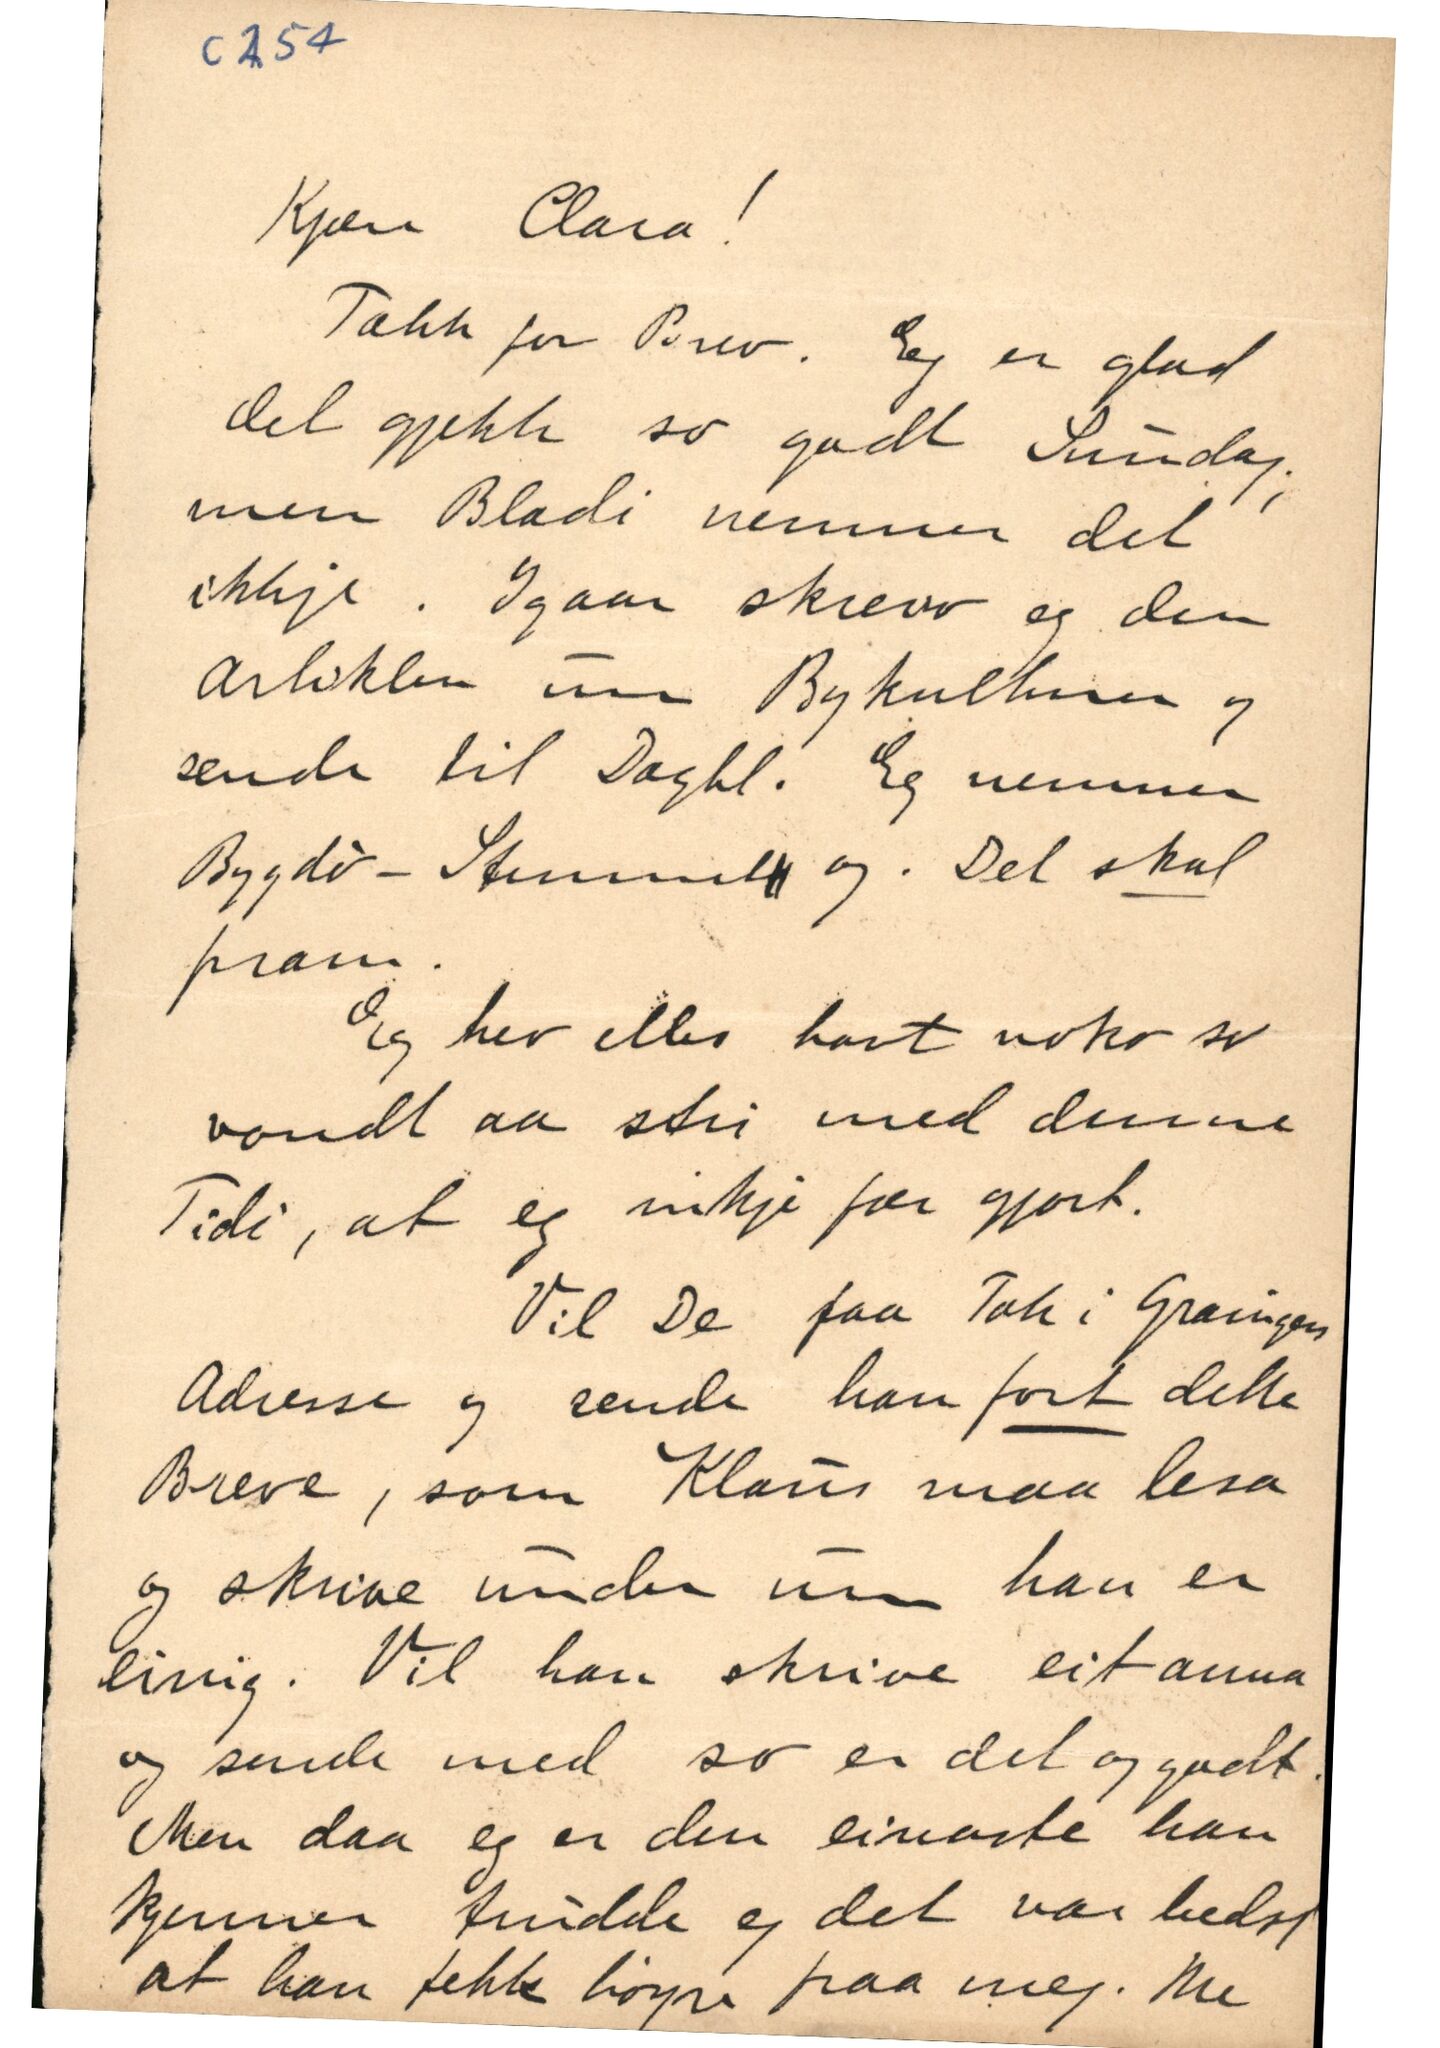 C 254
Kjære Clara!
Takk for Brev. Eg er glad
det gjekk so godt Sundag,
men Bladi nemner det
ikkje. Igaar skreiv eg den
Artiklen um Bykulturen og
sende til Dagbl. Eg nemner
Bygdø-Stemnet og. Det skal
fram.
Eg hev elles havt noko so
vondt aa stri med denne
Tidi, at eg inkje fær gjort.
Vil De faa Tak i Graingers
Adresse og sende han fort dette
Breve, som Klaus maa lesa
og skrive under um han er
einig. Vil han skrive eit anna
og sende med so er det og godt.
Men daa eg er den einaste han
kjenner trudde eg det var bedst
at han fekk høyre fraa meg. Me